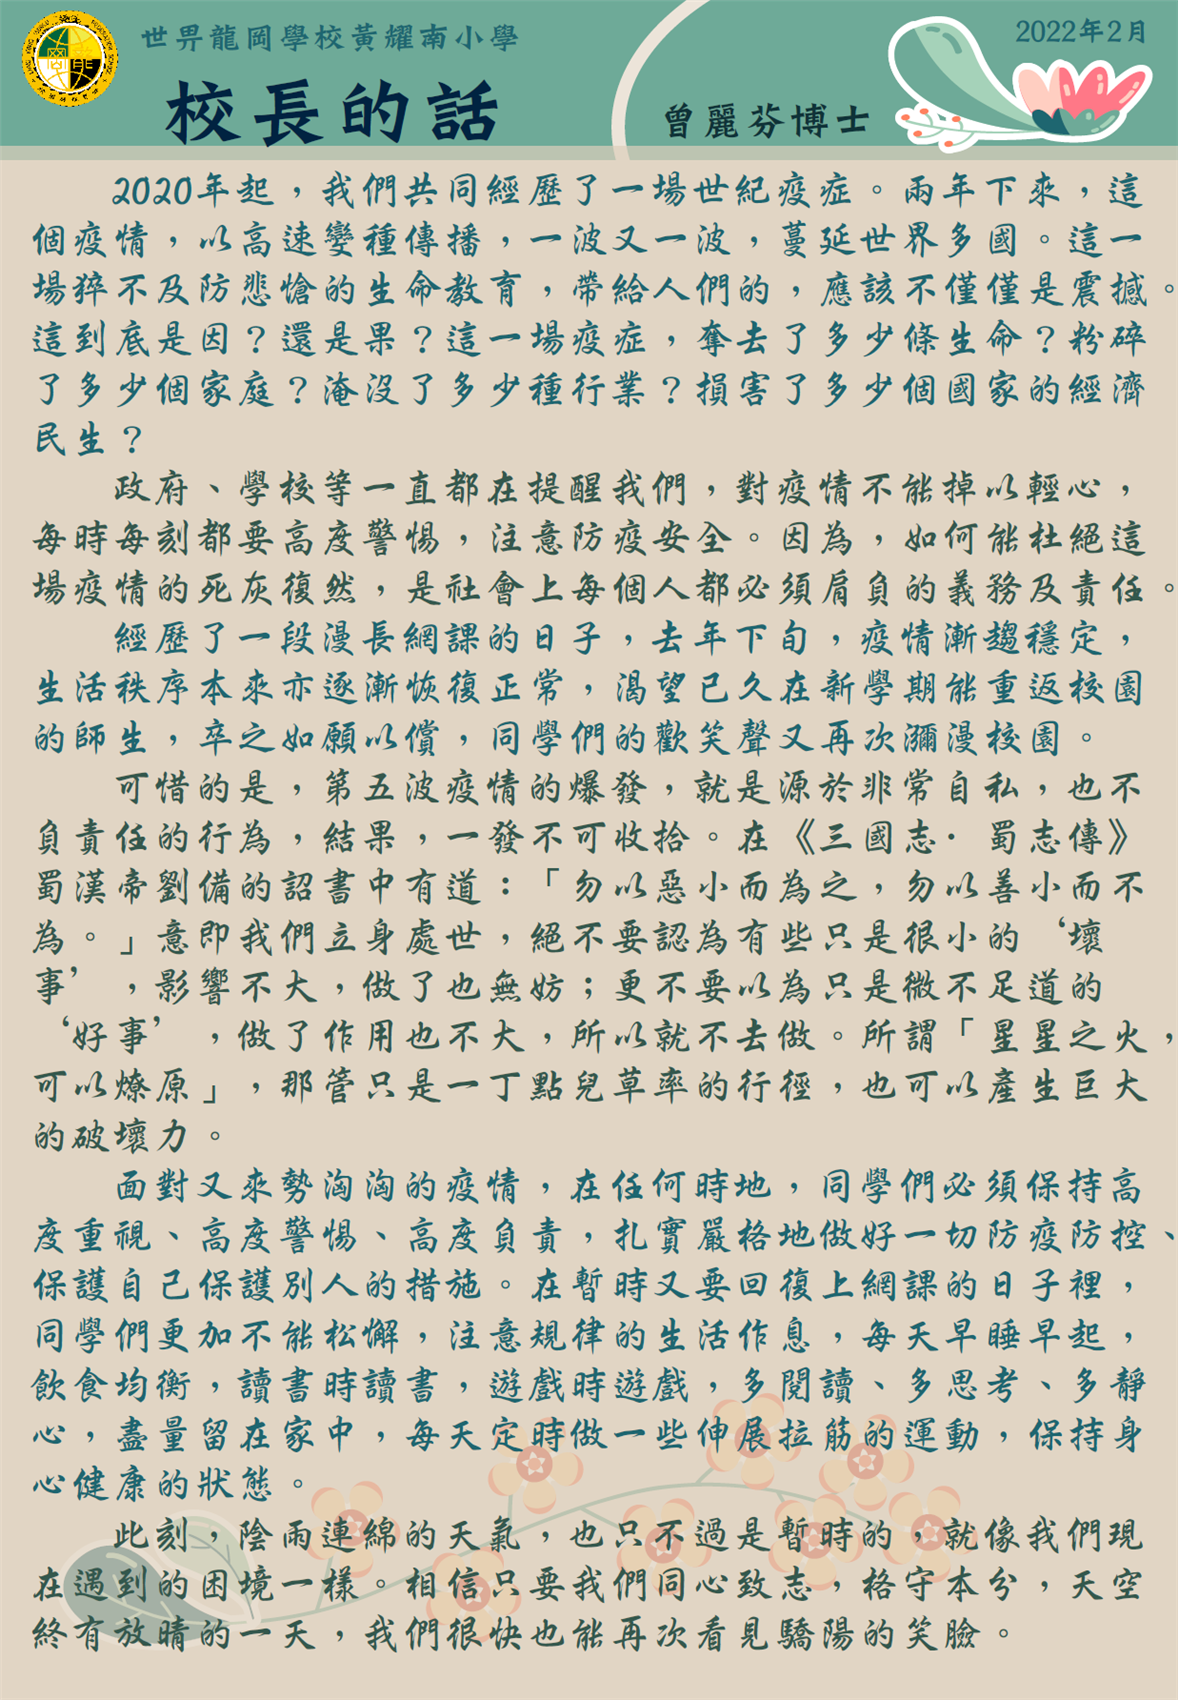 世界龍岡學校黃耀南小學
2022年2月
校長的話
曾麗芬博士
2020年起，我們共同經歷了一場世紀疫症。兩年下來，這
個疫情，以高速變種傳播，一波又一波，蔓延世界多國。這一
場猝不及防悲愴的生命教育，帶給人們的，應該不僅僅是震撼。
這到底是因？還是果？這一場疫症，奪去了多少條生命？粉碎
了多少個家庭？淹沒了多少種行業？損害了多少個國家的經濟
民生？
政府、學校等一直都在提醒我們，對疫情不能掉以輕心，
每時每刻都要高度警惕，注意防疫安全。因為，如何能杜絕這
場疫情的死灰復然，是社會上每個人都必須肩負的義務及責任。
經歷了一段漫長網課的日子，去年下旬，疫情漸趨穩定，
生活秩序本來亦逐漸恢復正常，渴望已久在新學期能重返校園
的師生，卒之如願以償，同學們的歡笑聲又再次瀰漫校園。
可惜的是，第五波疫情的爆發，就是源於非常自私，也不
負責任的行為，結果，一發不可收拾。在《三國志·蜀志傳》
蜀漢帝劉備的詔書中有道：「勿以惡小而為之，勿以善小而不
為。」意即我們立身處世，絕不要認為有些只是很小的‘壞
事’，影響不大，做了也無妨；更不要以為只是微不足道的
‘好事’，做了作用也不大，所以就不去做。所謂「星星之火，
可以燎原」，那管只是一丁點兒草率的行徑，也可以產生巨大
的破壞力。
面對又來勢洶洶的疫情，在任何時地，同學們必須保持高
度重視、高度警惕、高度負責，扎實嚴格地做好一切防疫防控、
保護自己保護別人的措施。在暫時又要回復上網課的日子裡，
同學們更加不能松懈，注意規律的生活作息，每天早睡早起，
飲食均衡，讀書時讀書，遊戲時遊戲，多閱讀、多思考、多靜
心，盡量留在家中，每天定時做一些伸展拉筋的運動，保持身
心健康的狀態。
此刻，陰雨連綿的天氣，也只不過是暫時的，就像我們現
在遇到的困境一樣。相信只要我們同心致志，格守本分，天空
終有放晴的一天，我們很快也能再次看見驕陽的笑臉。